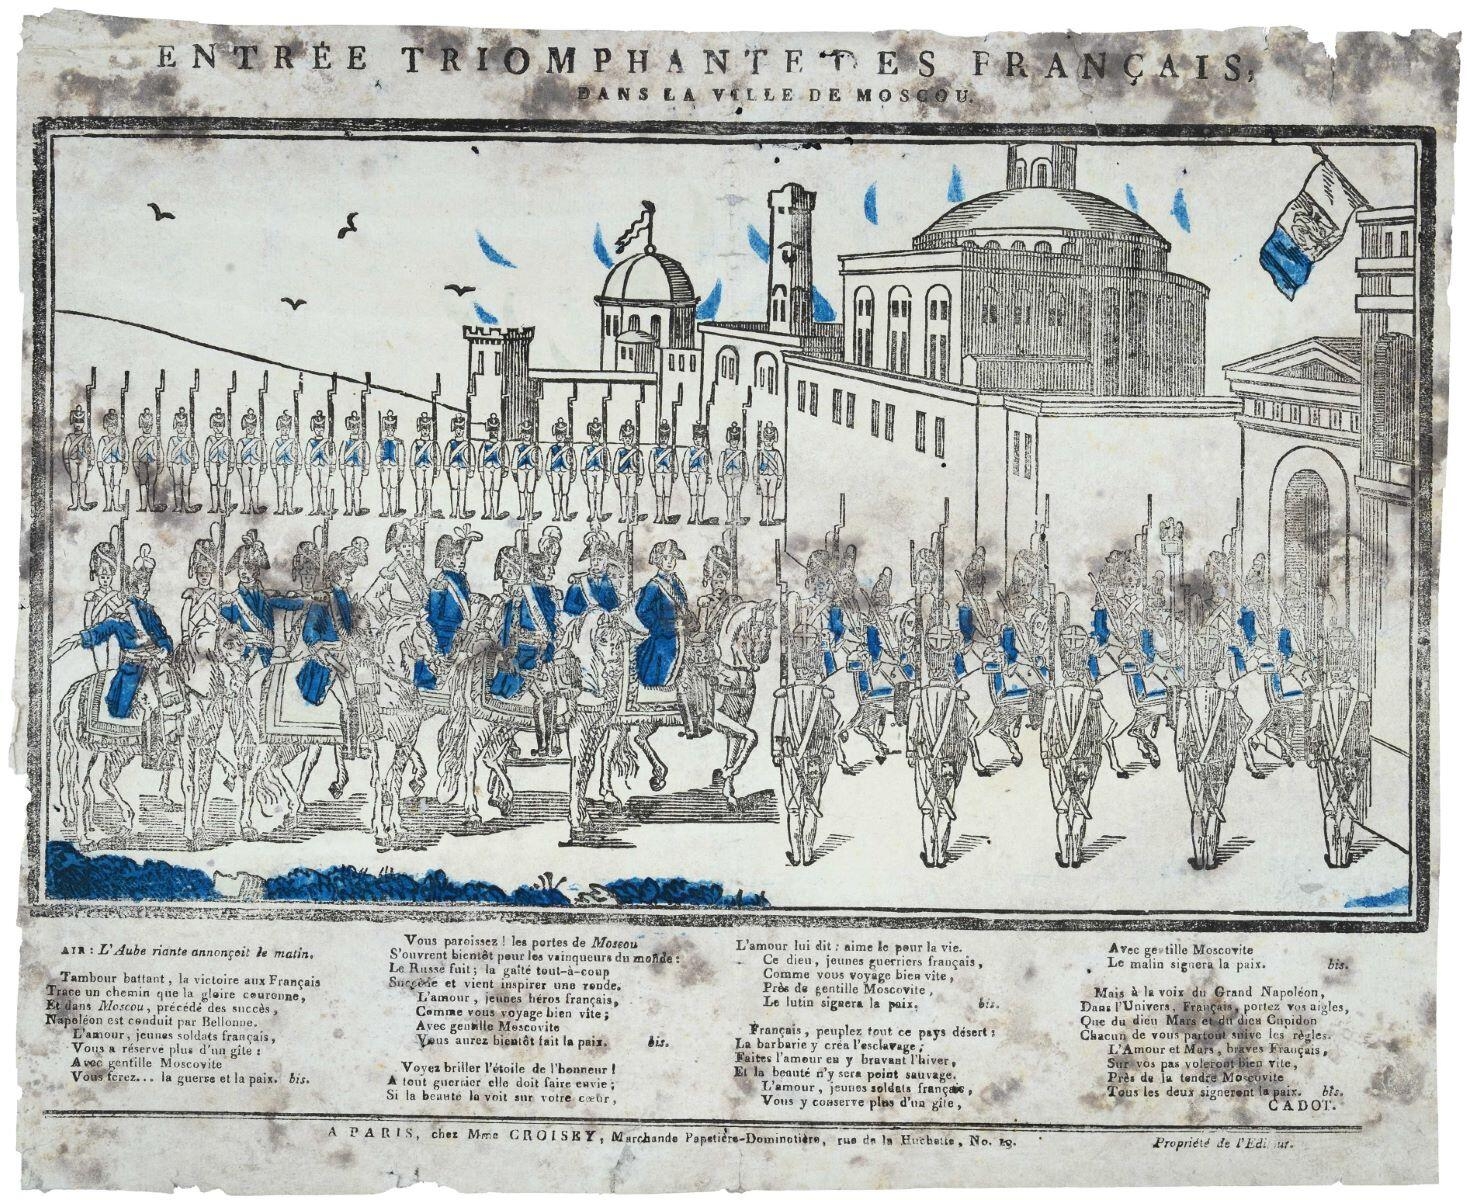 ENTRÉE TRIOMPHANTE DES FRANÇAIS,
DANS LA VILLE DE MOSCOU.
AIR : L'Aube riante annonçoit le matin.
Tambour battant, la victoire aux Français
Trace un chemin que la gloire couronne,
Et dans Moscou, précédé des succès,
Napoléon est conduit par Bellonne.
L'amour, jeunes soldats français,
Vous a réservé plus d'un gîte :
Avec gentille Moscovite
Vous ferez... la guerre et la paix. bis.
Vous paroissez ! les portes de Moscou
S'ouvrent bientôt pour les vainqueurs du monde :
Le Russe fuit ; la gaîté tout-à-coup
Succède et vient inspirer une ronde.
L'amour, jeunes héros français,
Comme vous voyage bien vite ;
Avec gentille Moscovite
Vous aurez bientôt fait la paix. bis.
Voyez briller l'étoile de l'honneur !
A tout guerrier elle doit faire envie ;
Si la beauté la voit sur votre cœur,
L'amour lui dit : aime le pour la vie.
Ce dieu, jeunes guerriers français,
Comme vous voyage bien vite,
Près de gentille Moscovite,
Le lutin signera la paix. bis.
Français, peuplez tout ce pays désert :
La barbarie y créa l'esclavage ;
Faites l'amour en y bravant l'hiver,
Et la beauté n'y sera point sauvage.
L'amour, jeunes soldats français,
Vous y conserve plus d'un gîte,
Avec gentille Moscovite
Le malin signera la paix. bis.
Mais à la voix du Grand Napoléon,
Dans l'Univers, Français, portez vos aigles,
Que du dieu Mars et du dieu Cupidon
Chacun de vous partout suive les règles.
L'Amour et Mars, braves Français,
Sur vos pas voleront bien vite,
Près de la tendre Moscovite
Tous les deux signeront la paix. bis.
CADOT.
A PARIS, chez Mme CROISEY, Marchande Papetière-Dominotière, rue de la Huchette, No. 29.
Propriété de l'Editeur.